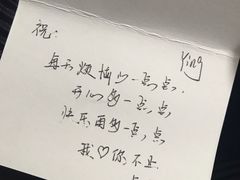 祝:
Ying
每天烦恼少一点点,
开心多一点点
快乐再多一点点
我♡你不止